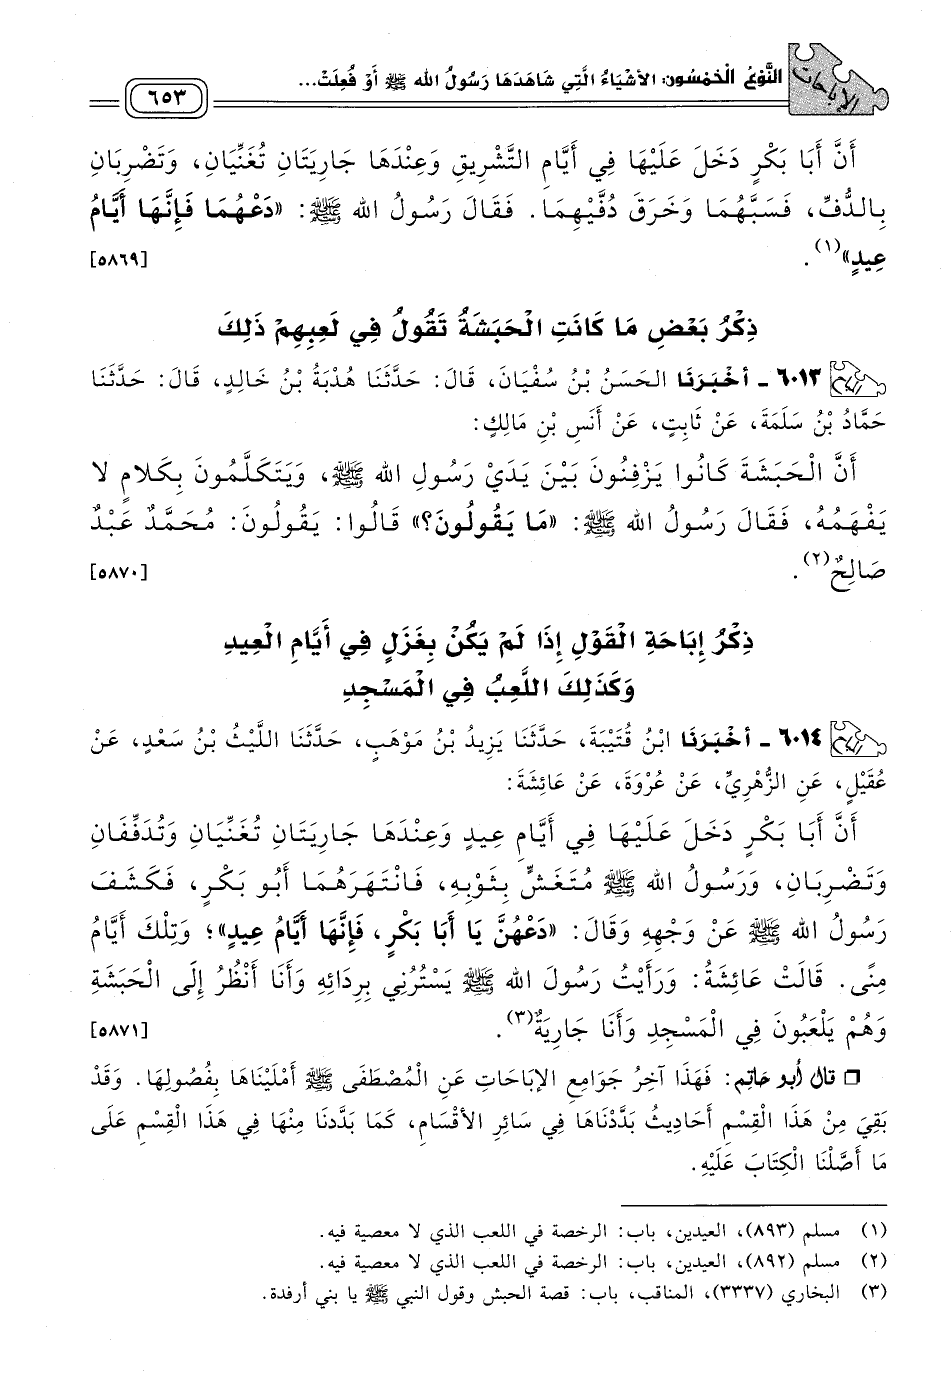 الإباحات
النَّوْعُ الْخَمْسُونَ: الأشْيَاءُ الَّتِي شَاهَدَهَا رَسُولُ الله ﷺ أَوْ فُعِلَتْ...
٦٥٣
أَنَّ أَبَا بَكْرٍ دَخَلَ عَلَيْهَا فِي أَيَّامِ التَّشْرِيقِ وَعِنْدَهَا جَارِيَتَانِ تُغَنِّيَانِ، وَتَضْرِبَانِ
بِالدُّفِّ، فَسَبَّهُمَا وَخَرَقَ دُفَّيْهِمَا. فَقَالَ رَسُولُ الله ﷺ: «دَعْهُمَا فَإِنَّهَا أَيَّامُ
عِيدٍ»(١). [٥٨٦٩]
ذِكْرُ بَعْضِ مَا كَانَتِ الْحَبَشَةُ تَقُولُ فِي لَعِبِهِمْ ذَلِكَ
٦٠١٣ - أَخْبَرَنَا الحَسَنُ بْنُ سُفْيَانَ، قَالَ: حَدَّثَنَا هُدْبَةُ بْنُ خَالِدٍ، قَالَ: حَدَّثَنَا
حَمَّادُ بْنُ سَلَمَةَ، عَنْ ثَابِتٍ، عَنْ أَنَسِ بْنِ مَالِكٍ:
أَنَّ الْحَبَشَةَ كَانُوا يَزْفِنُونَ بَيْنَ يَدَيْ رَسُولِ الله ﷺ، وَيَتَكَلَّمُونَ بِكَلَامٍ لا
يَفْهَمُهُ، فَقَالَ رَسُولُ الله ﷺ: «مَا يَقُولُونَ؟» قَالُوا: يَقُولُونَ: مُحَمَّدٌ عَبْدٌ
صَالِحٌ(٢). [٥٨٧٠]
ذِكْرُ إِبَاحَةِ الْقَوْلِ إِذَا لَمْ يَكُنْ بِغَزَلٍ فِي أَيَّامِ الْعِيدِ
وَكَذَلِكَ اللَّعِبُ فِي الْمَسْجِدِ
٦٠١٤ - أَخْبَرَنَا ابْنُ قُتَيْبَةَ، حَدَّثَنَا يَزِيدُ بْنُ مَوْهَبٍ، حَدَّثَنَا اللَّيْثُ بْنُ سَعْدٍ، عَنْ
عُقَيْلٍ، عَنِ الزُّهْرِيِّ، عَنْ عُرْوَةَ، عَنْ عَائِشَةَ:
أَنَّ أَبَا بَكْرٍ دَخَلَ عَلَيْهَا فِي أَيَّامِ عِيدٍ وَعِنْدَهَا جَارِيَتَانِ تُغَنِّيَانِ وَتُدَفِّفَانِ
وَتَضْرِبَانِ، وَرَسُولُ الله ﷺ مُتَغَشٍّ بِثَوْبِهِ، فَانْتَهَرَهُمَا أَبُو بَكْرٍ، فَكَشَفَ
رَسُولُ الله ﷺ عَنْ وَجْهِهِ وَقَالَ: «دَعْهُنَّ يَا أَبَا بَكْرٍ، فَإِنَّهَا أَيَّامُ عِيدٍ»؛ وَتِلْكَ أَيَّامُ
مِنًى. قَالَتْ عَائِشَةُ: وَرَأَيْتُ رَسُولَ الله ﷺ يَسْتُرُنِي بِرِدَائِهِ وَأَنَا أَنْظُرُ إِلَى الْحَبَشَةِ
وَهُمْ يَلْعَبُونَ فِي الْمَسْجِدِ وَأَنَا جَارِيَةٌ(٣). [٥٨٧١]
❒ قال أبو حاتم: فَهَذَا آخِرُ جَوَامِعِ الإِبَاحَاتِ عَنِ الْمُصْطَفَى ﷺ أَمْلَيْنَاهَا بِفُصُولِهَا. وَقَدْ
بَقِيَ مِنْ هَذَا الْقِسْمِ أَحَادِيثُ بَدَّدْنَاهَا فِي سَائِرِ الأَقْسَامِ، كَمَا بَدَّدنَا مِنْهَا فِي هَذَا الْقِسْمِ عَلَى
مَا أَصَّلْنَا الْكِتَابَ عَلَيْهِ.
(١) مسلم (٨٩٣)، العيدين، باب: الرخصة في اللعب الذي لا معصية فيه.
(٢) مسلم (٨٩٢)، العيدين، باب: الرخصة في اللعب الذي لا معصية فيه.
(٣) البخاري (٣٣٣٧)، المناقب، باب: قصة الحبش وقول النبي ﷺ يا بني أرفدة.